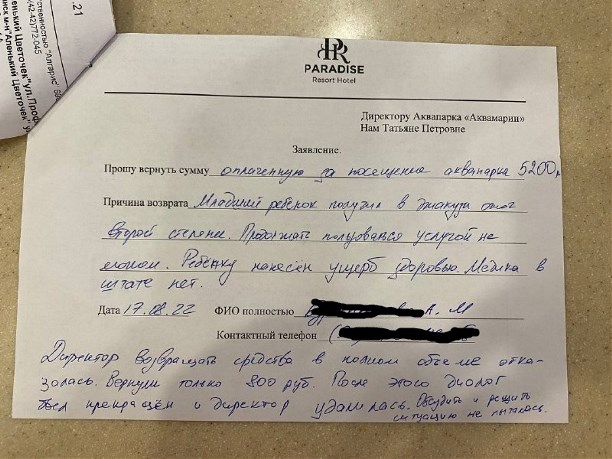 .21
"Алгарис"
(42 42)772-045
"Аленький Цветочек"
PR
PARADISE
Resort Hotel
Директору Аквапарка «Аквамарин»
Нам Татьяне Петровне
Заявление.
Прошу вернуть сумму оплаченную за посещение аквапарка 5200р
Причина возврата Младший ребенок получил в джакузи ожог
второй степени. Продолжать пользоваться услугой не
можем. Ребенку нанесён ущерб здоровью. Медика в
штате нет.
Дата 17.08.22 ФИО полностью А. М
Контактный телефон
Директор возвращать средства в полном объеме отка-
залась. Вернули только 800 руб. После этого диалог
был прекращён и директор удалилась. Обсудить и решить
ситуацию не пыталась.